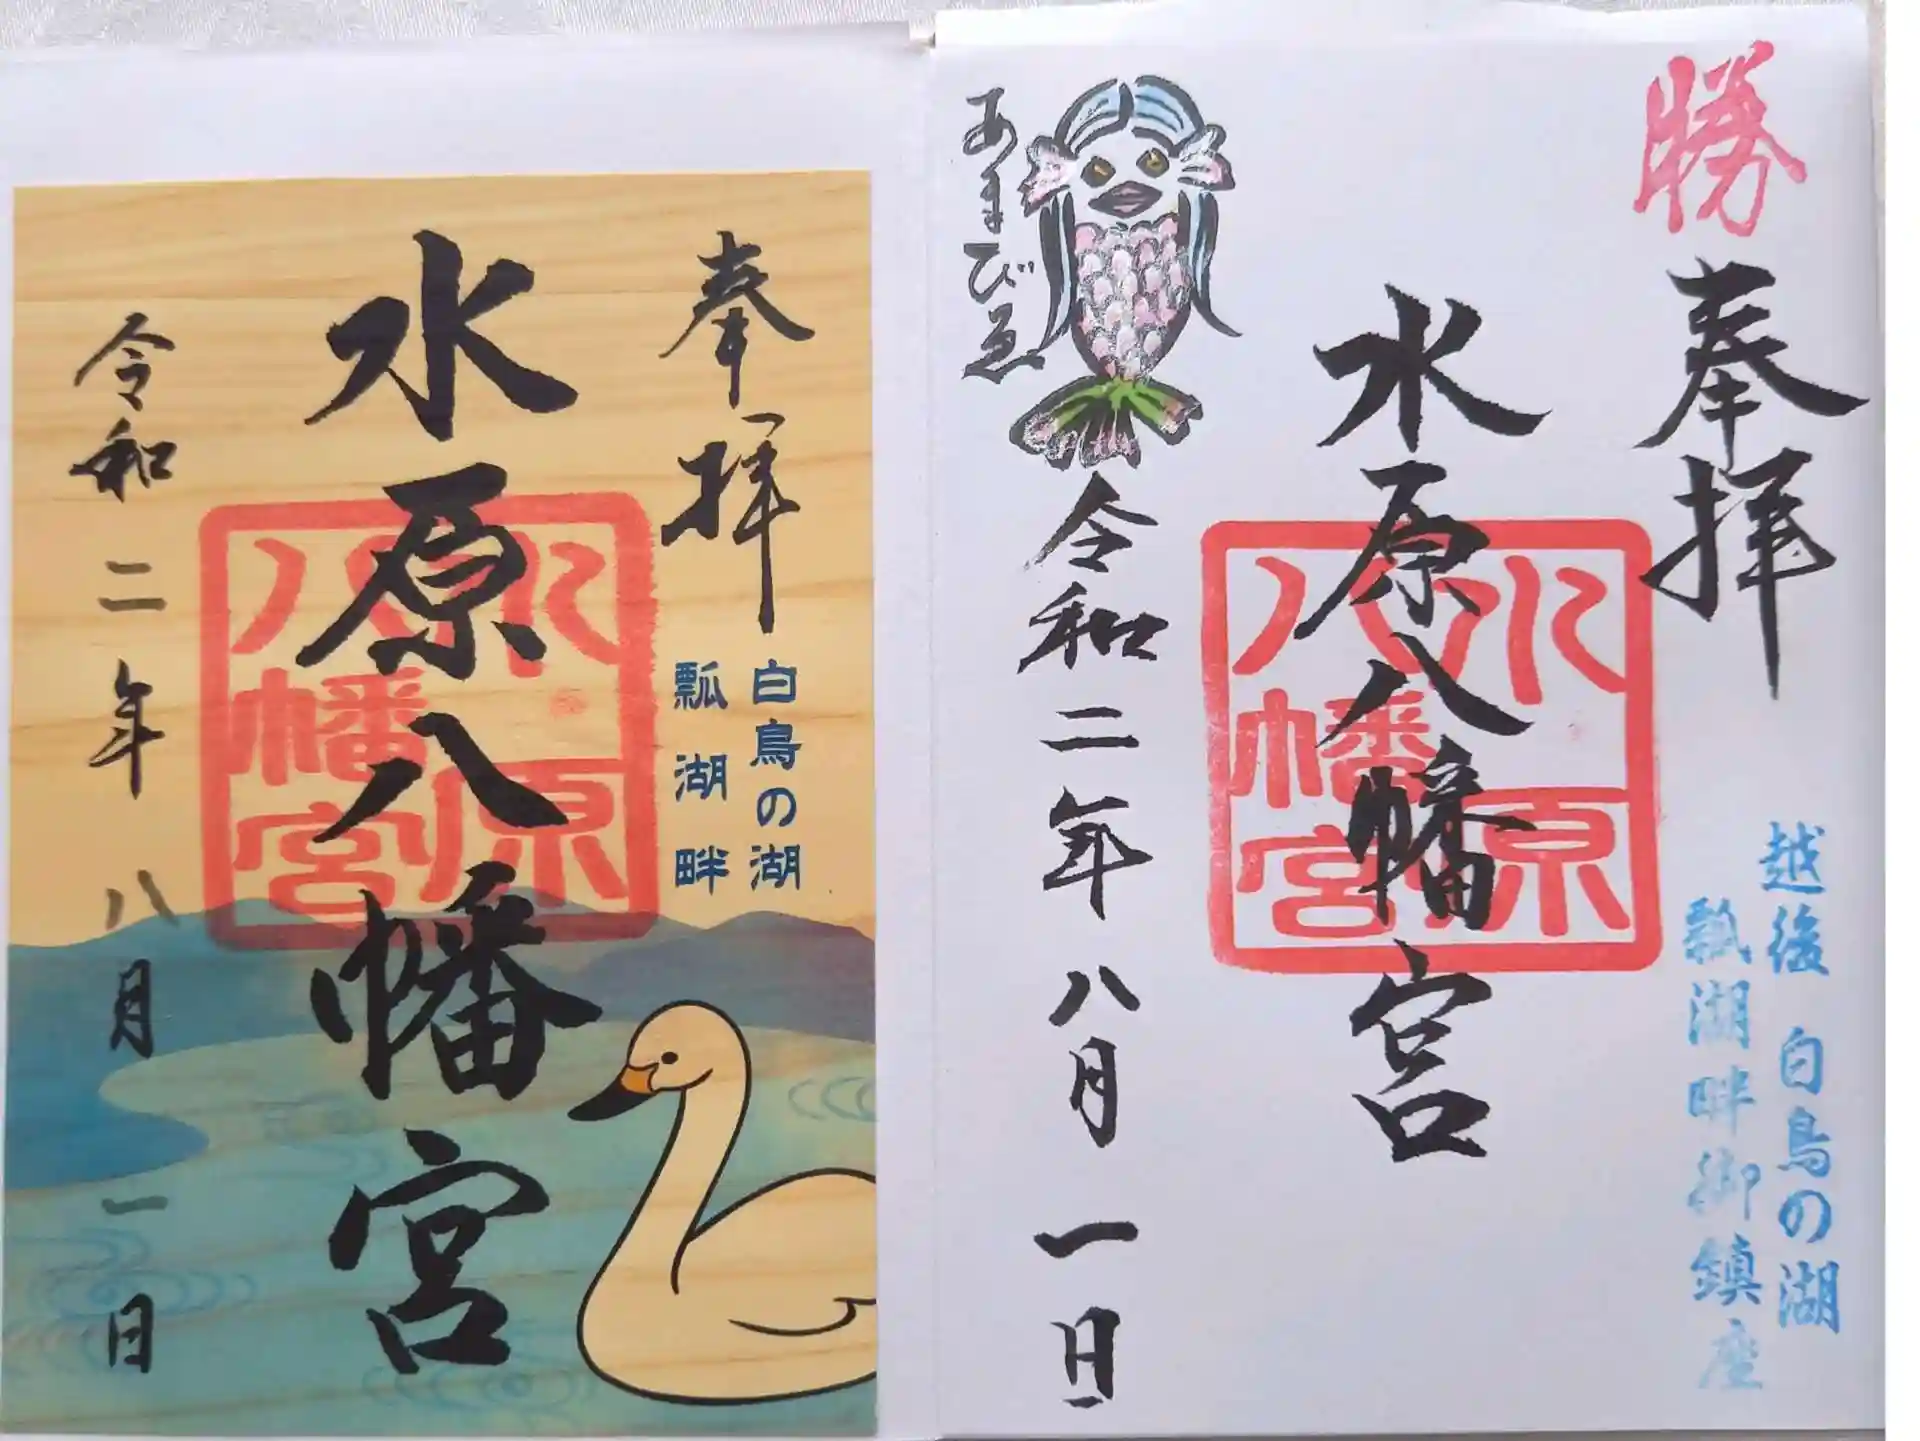 勝
奉拝
越後 白鳥の湖
瓢湖畔御鎮座
水原八幡宮
水原
八幡宮
令和二年八月一日
あまびゑ
奉拝
白鳥の湖
瓢湖畔
水原八幡宮
水原
八幡宮
令和二年八月一日